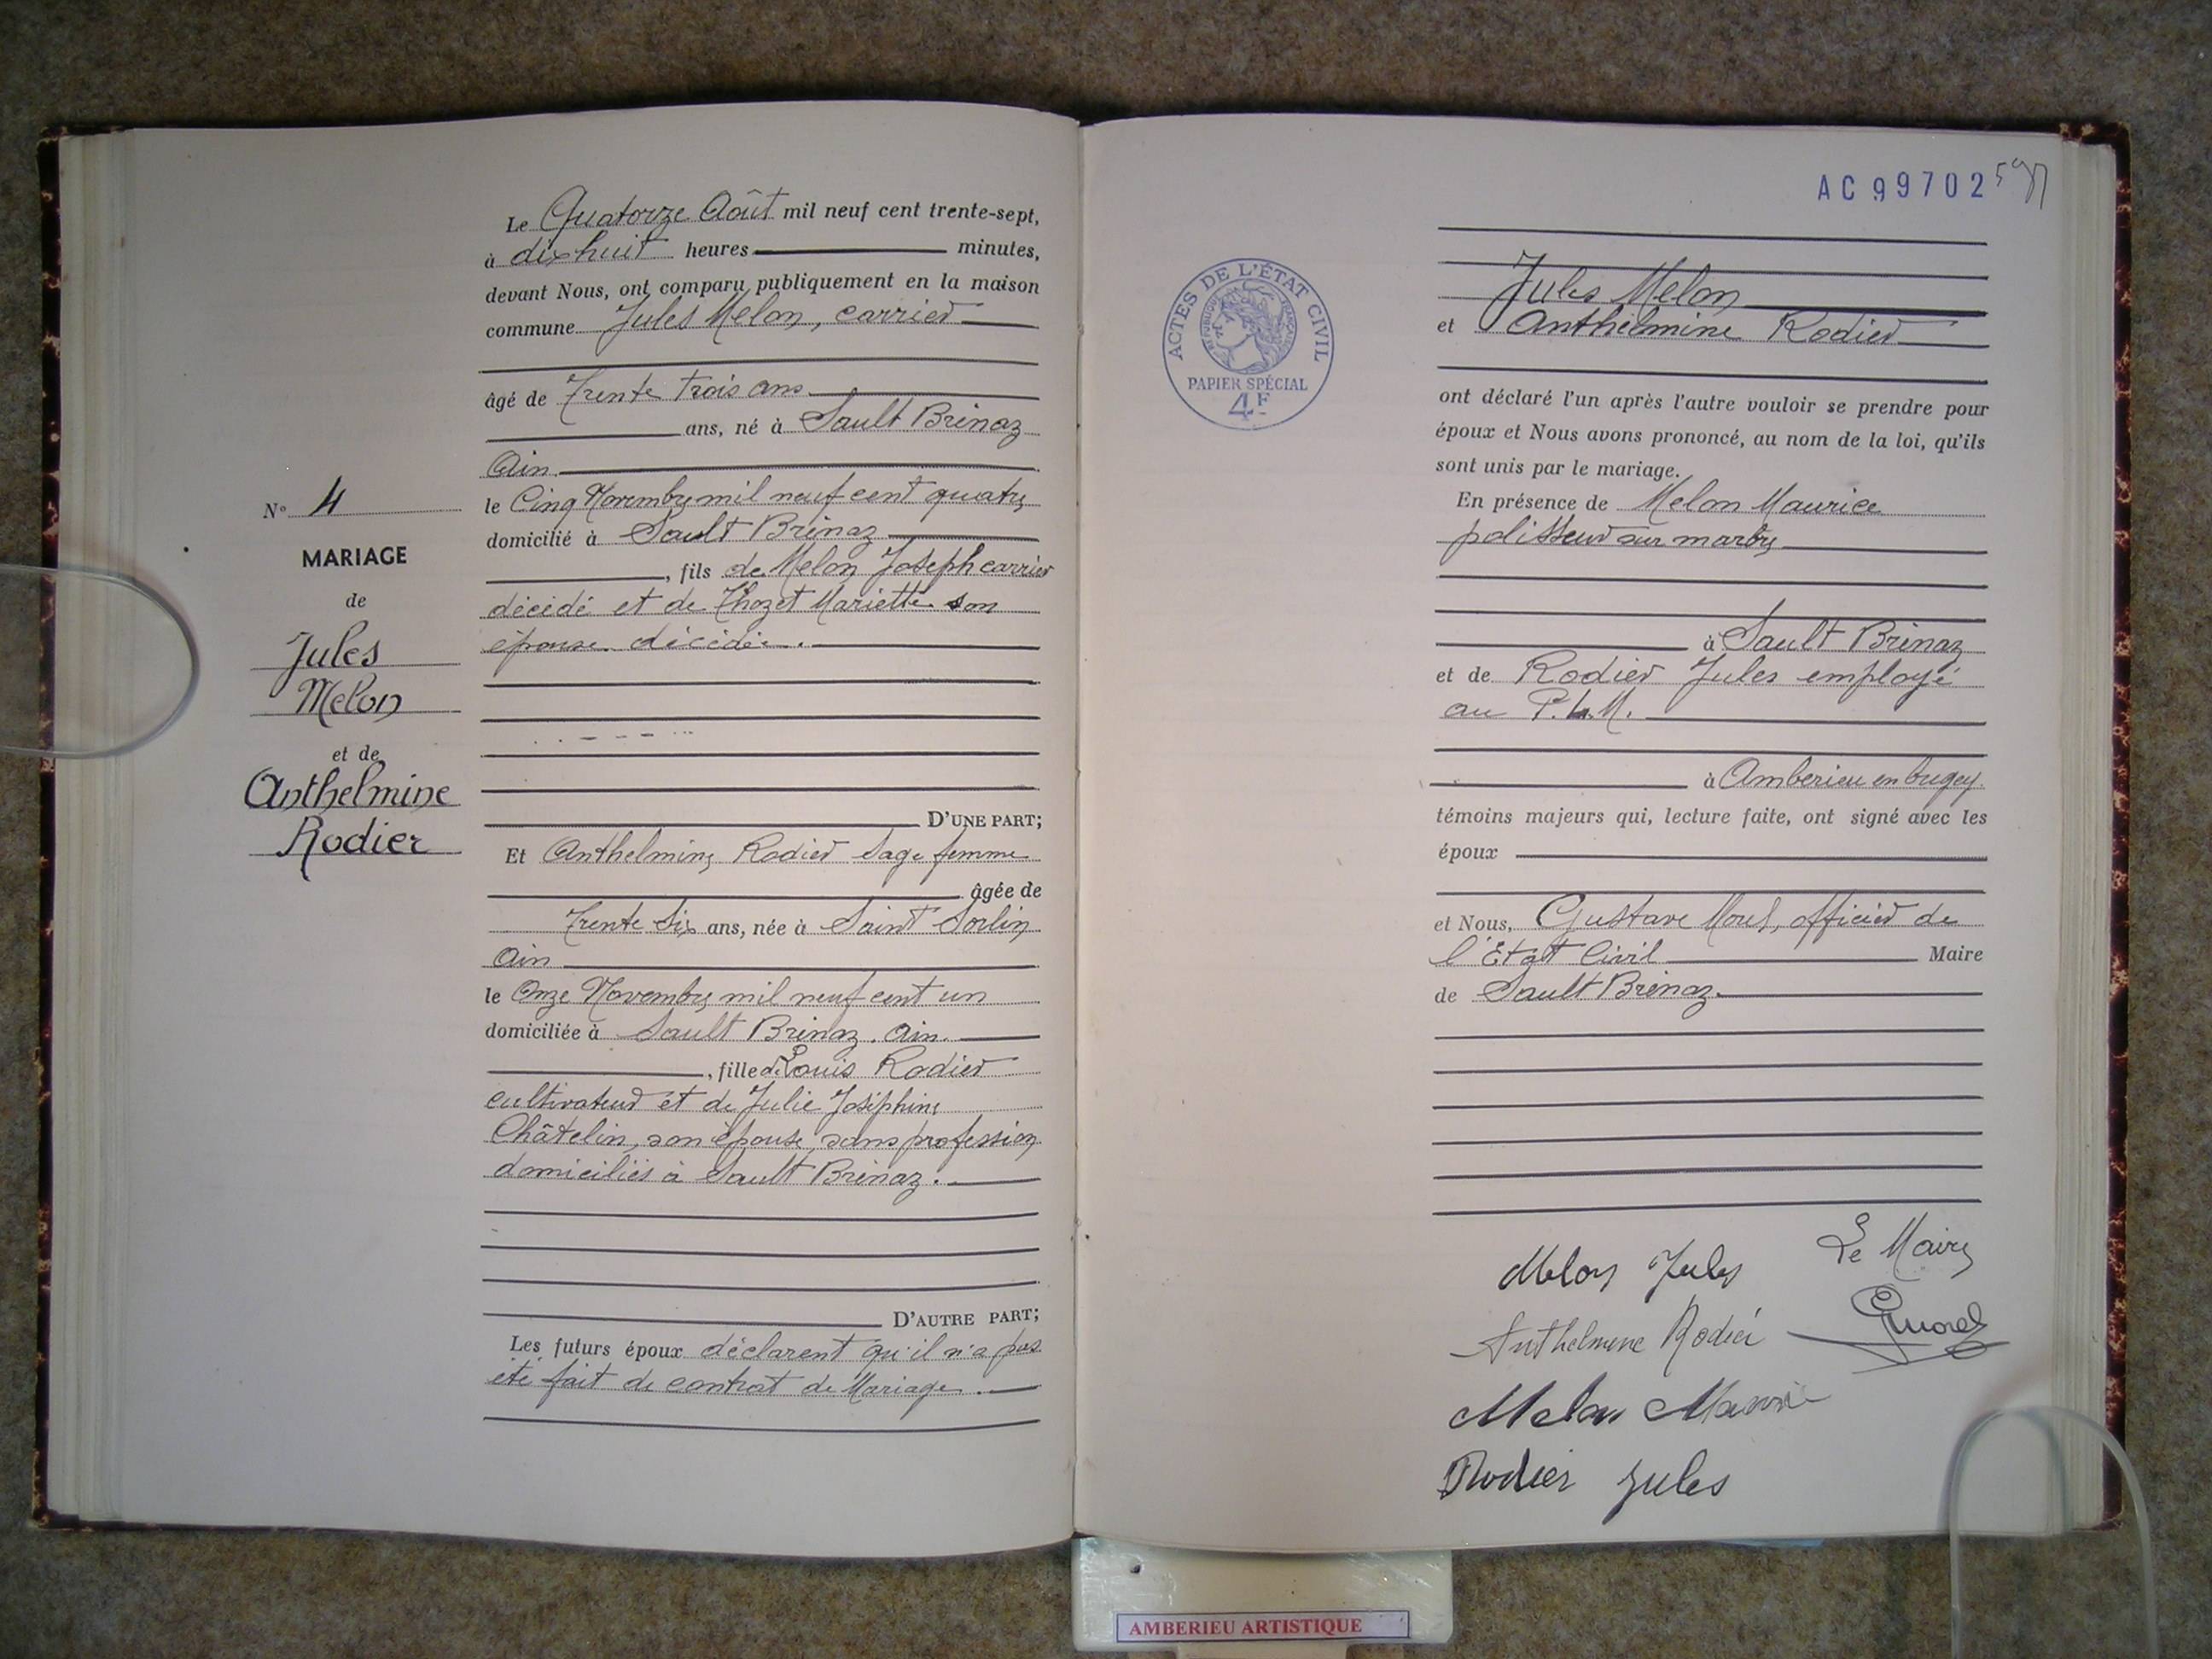 N° 4
MARIAGE
de
Jules
Melon
et de
Anthelmine
Rodier
Le Quatorze Août mil neuf cent trente-sept,
à dix huit heures minutes,
devant Nous, ont comparu publiquement en la maison
commune Jules Melon, carrier
âgé de Trente trois ans
ans, né à Sault Brénaz
Ain
le Cinq Novembre mil neuf cent quatre
domicilié à Sault Brénaz
, fils de Melon Joseph carrier
décédé et de Thozet Mariette son
épouse décédée.
D'UNE PART;
Et Anthelmine Rodier Sage femme
âgée de
Trente six ans, née à Saint Sorlin
Ain
le Onze Novembre mil neuf cent un
domiciliée à Sault Brénaz. Ain.
, fille de Louis Rodier
cultivateur et de Julie Joséphine
Châtelin, son épouse, sans profession
domiciliés à Sault Brénaz.
D'AUTRE PART;
Les futurs époux déclarent qu'il n'a pas
été fait de contrat de Mariage.
AC 99702
ACTES DE L'ÉTAT CIVIL
RÉPUBLIQUE FRANÇAISE
PAPIER SPÉCIAL
4F
Jules Melon
et Anthelmine Rodier
ont déclaré l'un après l'autre vouloir se prendre pour
époux et Nous avons prononcé, au nom de la loi, qu'ils
sont unis par le mariage.
En présence de Melon Maurice
polisseur sur marbre
à Sault Brénaz
et de Rodier Jules employé
au P.L.M.
à Amberieu en bugey.
témoins majeurs qui, lecture faite, ont signé avec les
époux
et Nous, Gustave Morel, officier de
l'Etat Civil Maire
de Sault Brénaz.
Melon Jules
Le Maire
Anthelmine Rodier
GMorel
Melon Maurice
Rodier Jules
AMBERIEU ARTISTIQUE